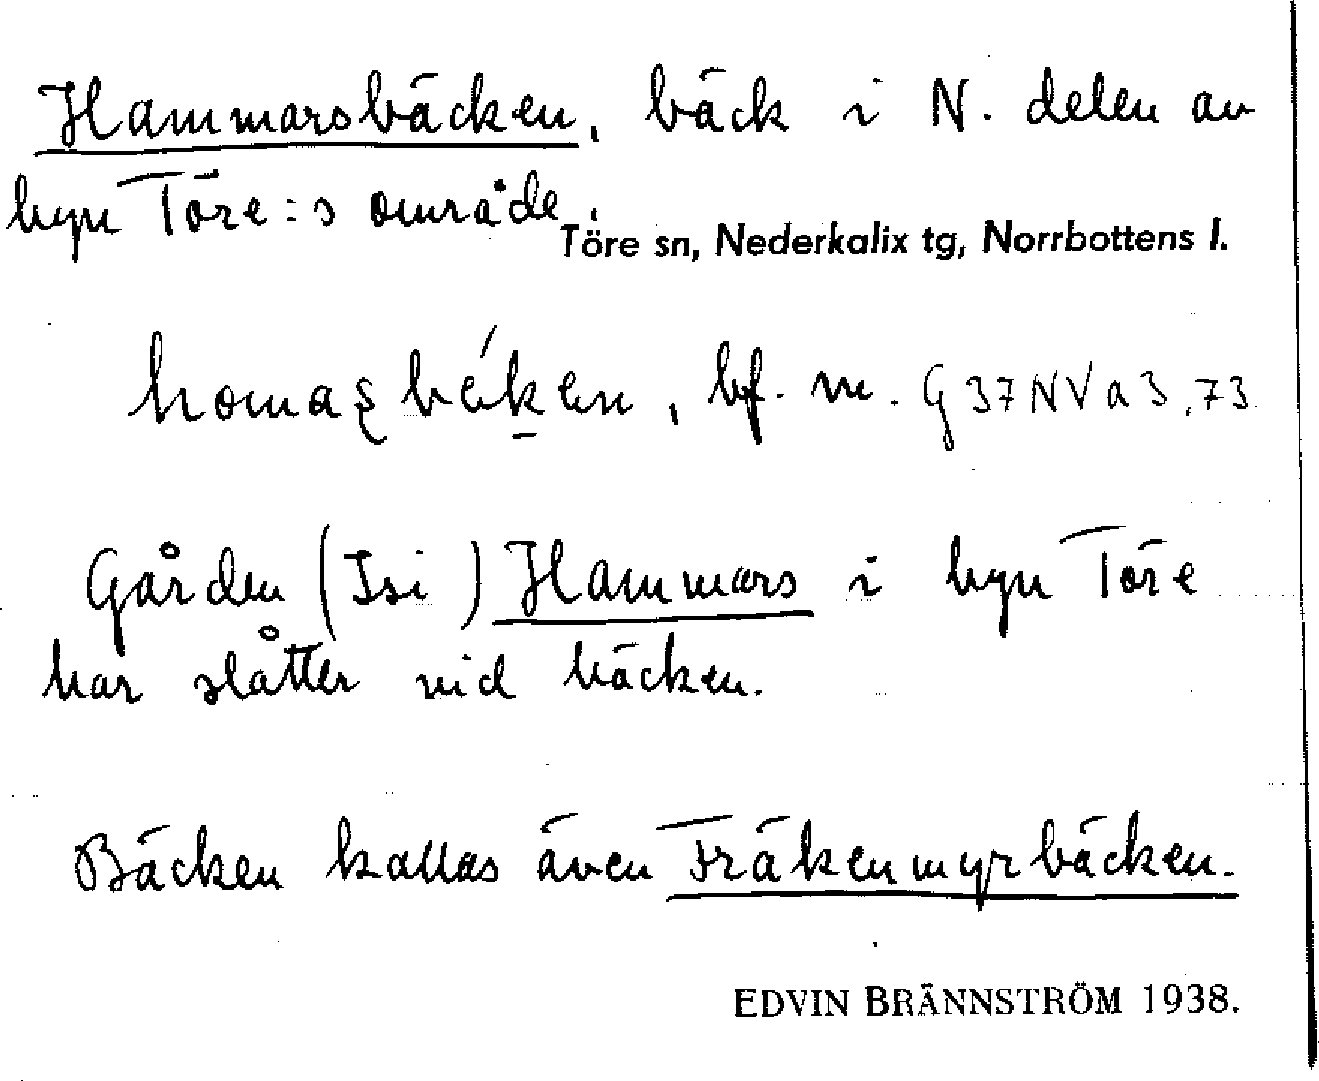 Hammarsbäcken, bäck i N. delen av
byn Töre:s område.
Töre sn, Nederkalix tg, Norrbottens l.
bf. m. G 37 NV a 3, 73
Gården (Isi) Hammars i byn Töre
har slåtter vid bäcken.
Bäcken kallas även Fräkenmyrbäcken.
EDVIN BRÄNNSTRÖM 1938.